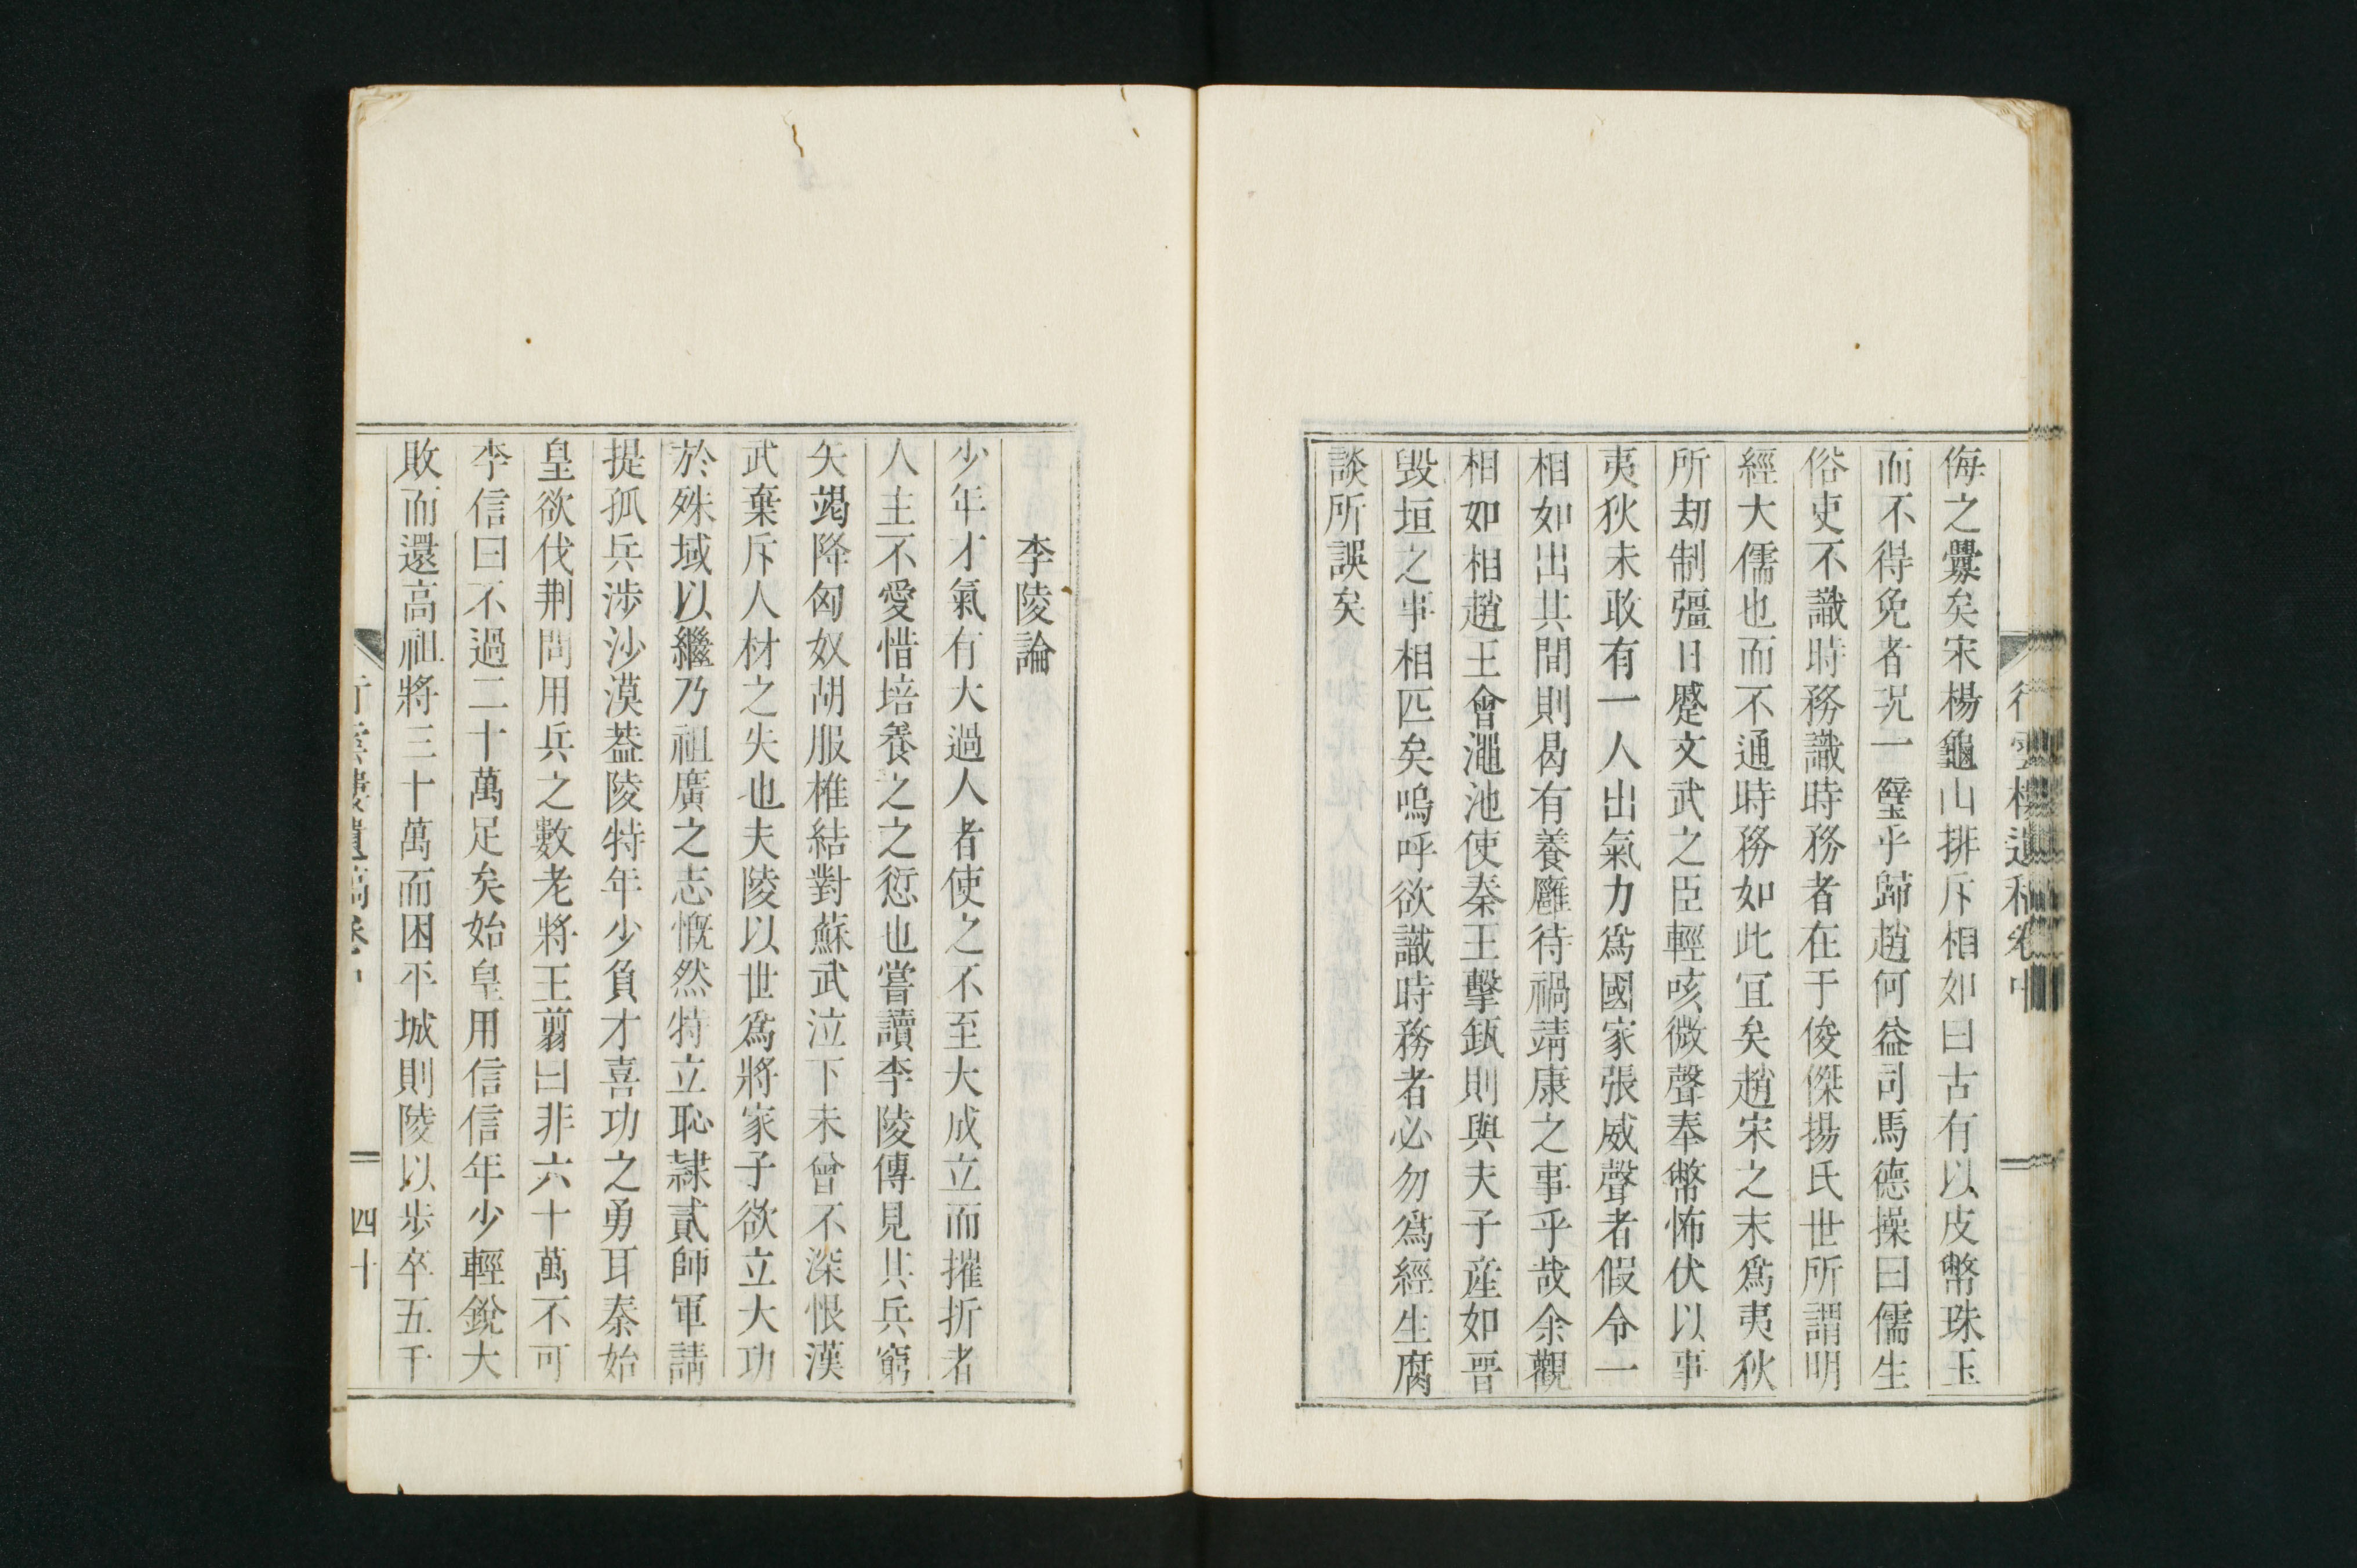 侮之釁矣宋楊龜山排斥相如曰古有以皮幣珠玉
而不得免者況一璧乎歸趙何益司馬德操曰儒生
俗吏不識時務識時務者在于俊傑揚氏世所謂明
經大儒也而不通時務如此宜矣趙宋之末爲夷狄
所刼制彊日蹙文武之臣輕咳微聲奉幣怖伏以事
夷狄未敢有一人出氣力爲國家張威聲者假令一
相如出其間則曷有養癰待禍靖康之事乎哉余觀
相如相趙王會澠池使秦王擊缻則與夫子產如晉
毀垣之事相匹矣嗚呼欲識時務者必勿爲經生腐
談所誤矣
李陵論
少年才氣有大過人者使之不至大成立而摧折者
人主不愛惜培養之之愆也嘗讀李陵傳見其兵窮
矢竭降匈奴胡服椎結對蘇武泣下未曾不深恨漢
武棄斥人材之失也夫陵以世爲將家子欲立大功
於殊域以繼乃祖廣之志慨然特立恥隷貳師軍請
提孤兵涉沙漠葢陵特年少負才喜功之勇耳秦始
皇欲伐荆問用兵之數老將王翦曰非六十萬不可
李信曰不過二十萬足矣始皇用信信年少輕銳大
敗而還高祖將三十萬而困平城則陵以步卒五千
四十